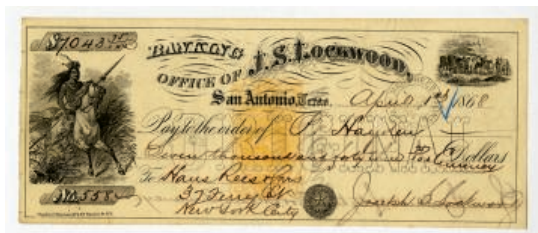 $7,043 25/100
BANKING
OFFICE OF J. S. LOCKWOOD,
San Antonio, Texas. April 1st 1868
Pay to the order of P. Hayden
Seven thousand and forty Dollars
Currency
No. 558
To Hans Rees
37 Ferry St
New York City
Joseph S. Lockwood